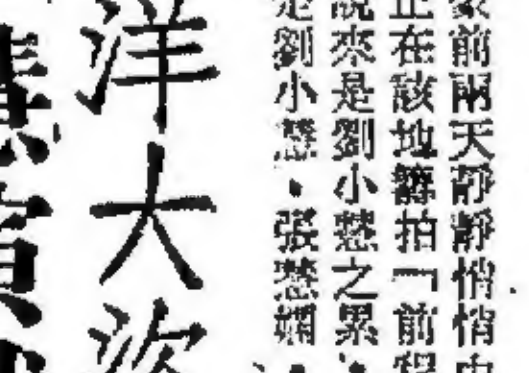 前兩天靜靜悄悄
正在該地籌拍「前程
說來是劉小慧之累
是劉小慧、張慧嫻
洋大盜